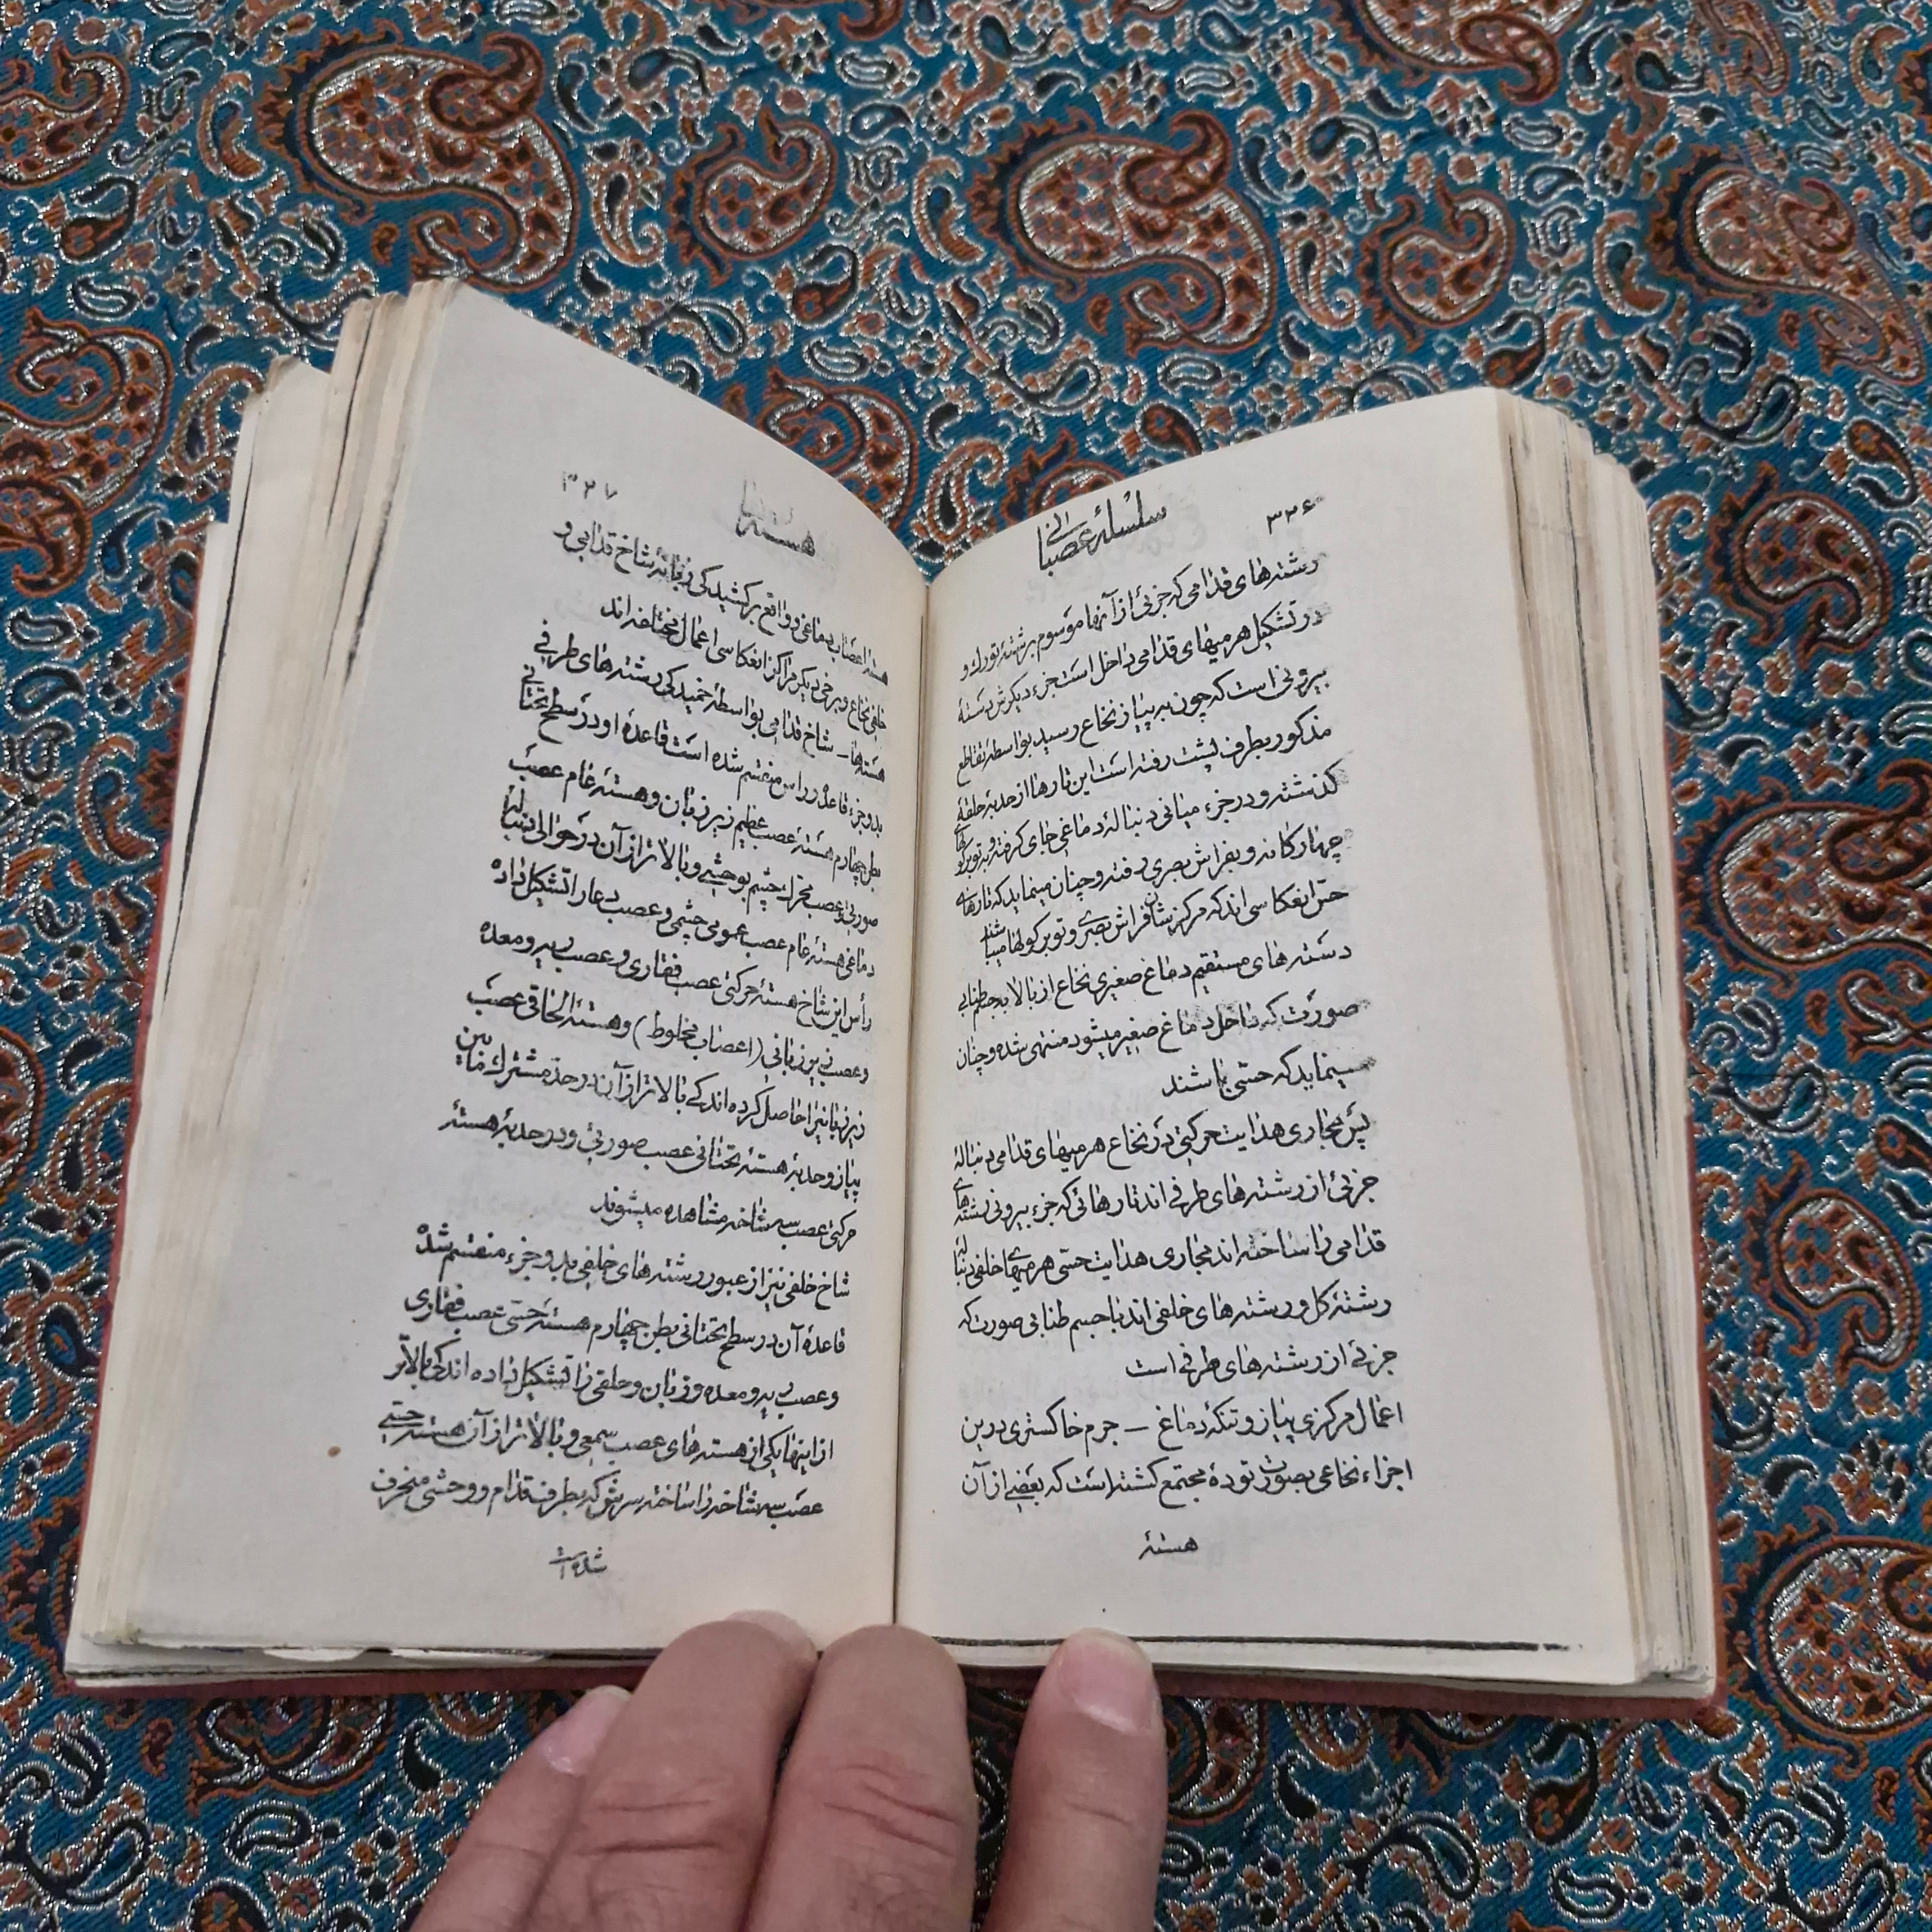 ۳۲۶
سلسلهٔ عصبانی
رشته‌های قدامی که جزئی از آنها موسوم برشتهٔ تورك و
در تشکیل هرمیهای قدامی داخل است جزء دیگرش دستهٔ
بیرونی است که چون به پیاز نخاع رسید بواسطهٔ تقاطع
مذکور بطرف پشت رفته است این تارها از حدبهٔ حلقهٔ
گذشته و در جزء میانی دنبالهٔ دماغی جای گرفته و به توبرکولهای
چهارکانه و بفراش بصری رفته و چنان مینماید که تارهای
حسّ انعکاسی اند که مرکزشان فراش بصری و توبرکولها میباشند
دسته‌های مستقیم دماغ صغیری نخاع از بالا بجسم طنابی
صورت که داخل دماغ صغیر میشود منتهی شده و چنان
مینماید که حسّی باشند
پس مجاری هدایت حرکتی در نخاع هرمیهای قدامی دنبالهٔ
جزئی از رشته‌های طرفی اند تارهائی که جزء بیرونی رشته‌های
قدامی را ساخته اند مجاری هدایت حسّی هرمیهای خلفی دنباله
رشتهٔ کل و رشته‌های خلفی اند با جسم طنابی صورت که
جزئی از رشته‌های طرفی است
اعمال مرکزی پیاز و تنکهٔ دماغ – جرم خاکستری درین
اجزاء نخاعی بصورت تودهٔ مجتمع کشته است که بعضی از آن
هستهٔ
۳۲۷
هسته‌ها
هستهٔ اعصاب دماغی و واقع بر کشیدگی دنبالهٔ شاخ قدامی و
خلفی نخاع و برخی دیگر مراکز انعکاسی اعمال مختلفه اند
هسته‌ها – شاخ قدامی بواسطهٔ خمیدگی رشته‌های طرفی
بدو جزء قاعده و راس منقسم شده است قاعدهٔ او در سطح تحتانی
بطن چهارم هستهٔ عصب عظیم زیر زبان و هستهٔ عام عصب
صورتی و عصب محرك چشم بوحشی و بالاتر از آن در حوالی دنبالهٔ
دماغی هستهٔ عام عصب عمومی چشمی و عصب دعار را تشکیل داده
رأس این شاخ هستهٔ حرکتی عصب فقاری و عصب ریه و معده
و عصب زیر زبانی (اعصاب مخلوط) و هستهٔ الحاقی عصب
زیر زبانیرا حاصل کرده اند کمی بالاتر از آن در حدّ مشترك مابین
پیاز و حدبهٔ هستهٔ تحتانی عصب صورتی و در حدبهٔ هستهٔ
حرکتی عصب سه شاخه مشاهده میشوند
شاخ خلفی نیز از عبور رشته‌های خلفی بدو جزء منقسم شده
قاعدهٔ آن در سطح تحتانی بطن چهارم هستهٔ حسّی عصب فقاری
و عصب ریه و معده و زبان و حلقی را تشکیل داده اند کمی بالاتر
از اینها یکی از هسته‌های عصب سمعی و بالاتر از آن هستهٔ حسّی
عصب سه شاخه را ساخته سرش که بطرف قدام و وحشی منحرف
شده است